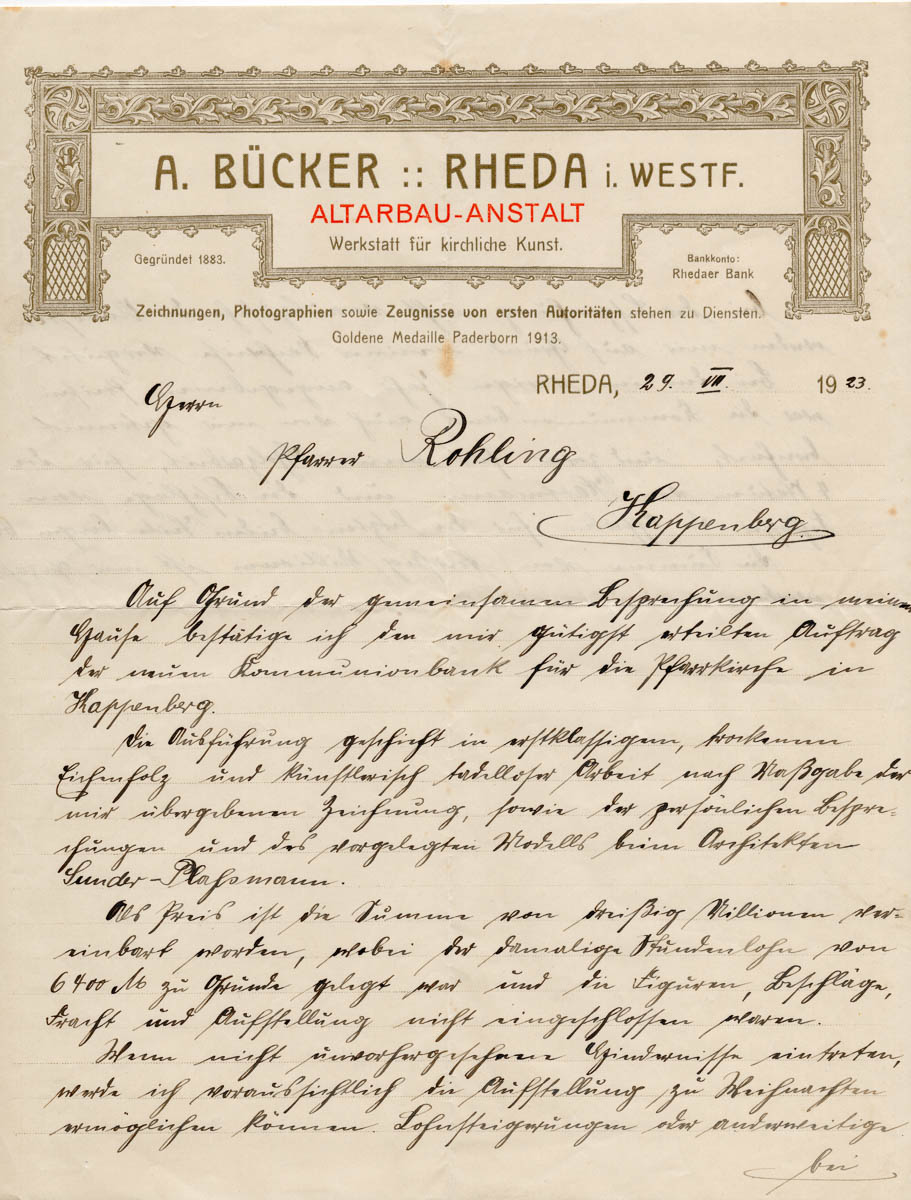 A. BÜCKER :: RHEDA i. WESTF.
ALTARBAU-ANSTALT
Werkstatt für kirchliche Kunst.
Gegründet 1883.
Bankkonto:
Rhedaer Bank
Zeichnungen, Photographien sowie Zeugnisse von ersten Autoritäten stehen zu Diensten.
Goldene Medaille Paderborn 1913.
RHEDA, 29. VII. 1923.
Herrn
Pfarrer Rohling
Kappenberg.
Auf Grund der gemeinsamen Besprechung in meinem
Hause bestätige ich den mir gütigst erteilten Auftrag
der neuen Kommunionbank für die Pfarrkirche in
Kappenberg.
Die Ausführung geschieht in erstklassigem, trockenem
Eichenholz und künstlerisch tadelloser Arbeit nach Maßgabe der
mir übergebenen Zeichnung, sowie der persönlichen Bespre-
chungen und des vorgelegten Modells beim Architekten
Sunder-Plaßmann.
Als Preis ist die Summe von dreißig Millionen ver-
einbart worden, wobei der damalige Stundenlohn von
6400 M zu Grunde gelegt war und die Figuren, Beschläge,
Fracht und Aufstellung nicht eingeschlossen waren.
Wenn nicht unvorhergesehene Hindernisse eintreten,
werde ich voraussichtlich die Aufstellung zu Weihnachten
ermöglichen können. Lohnsteigerungen oder anderweitige
bei